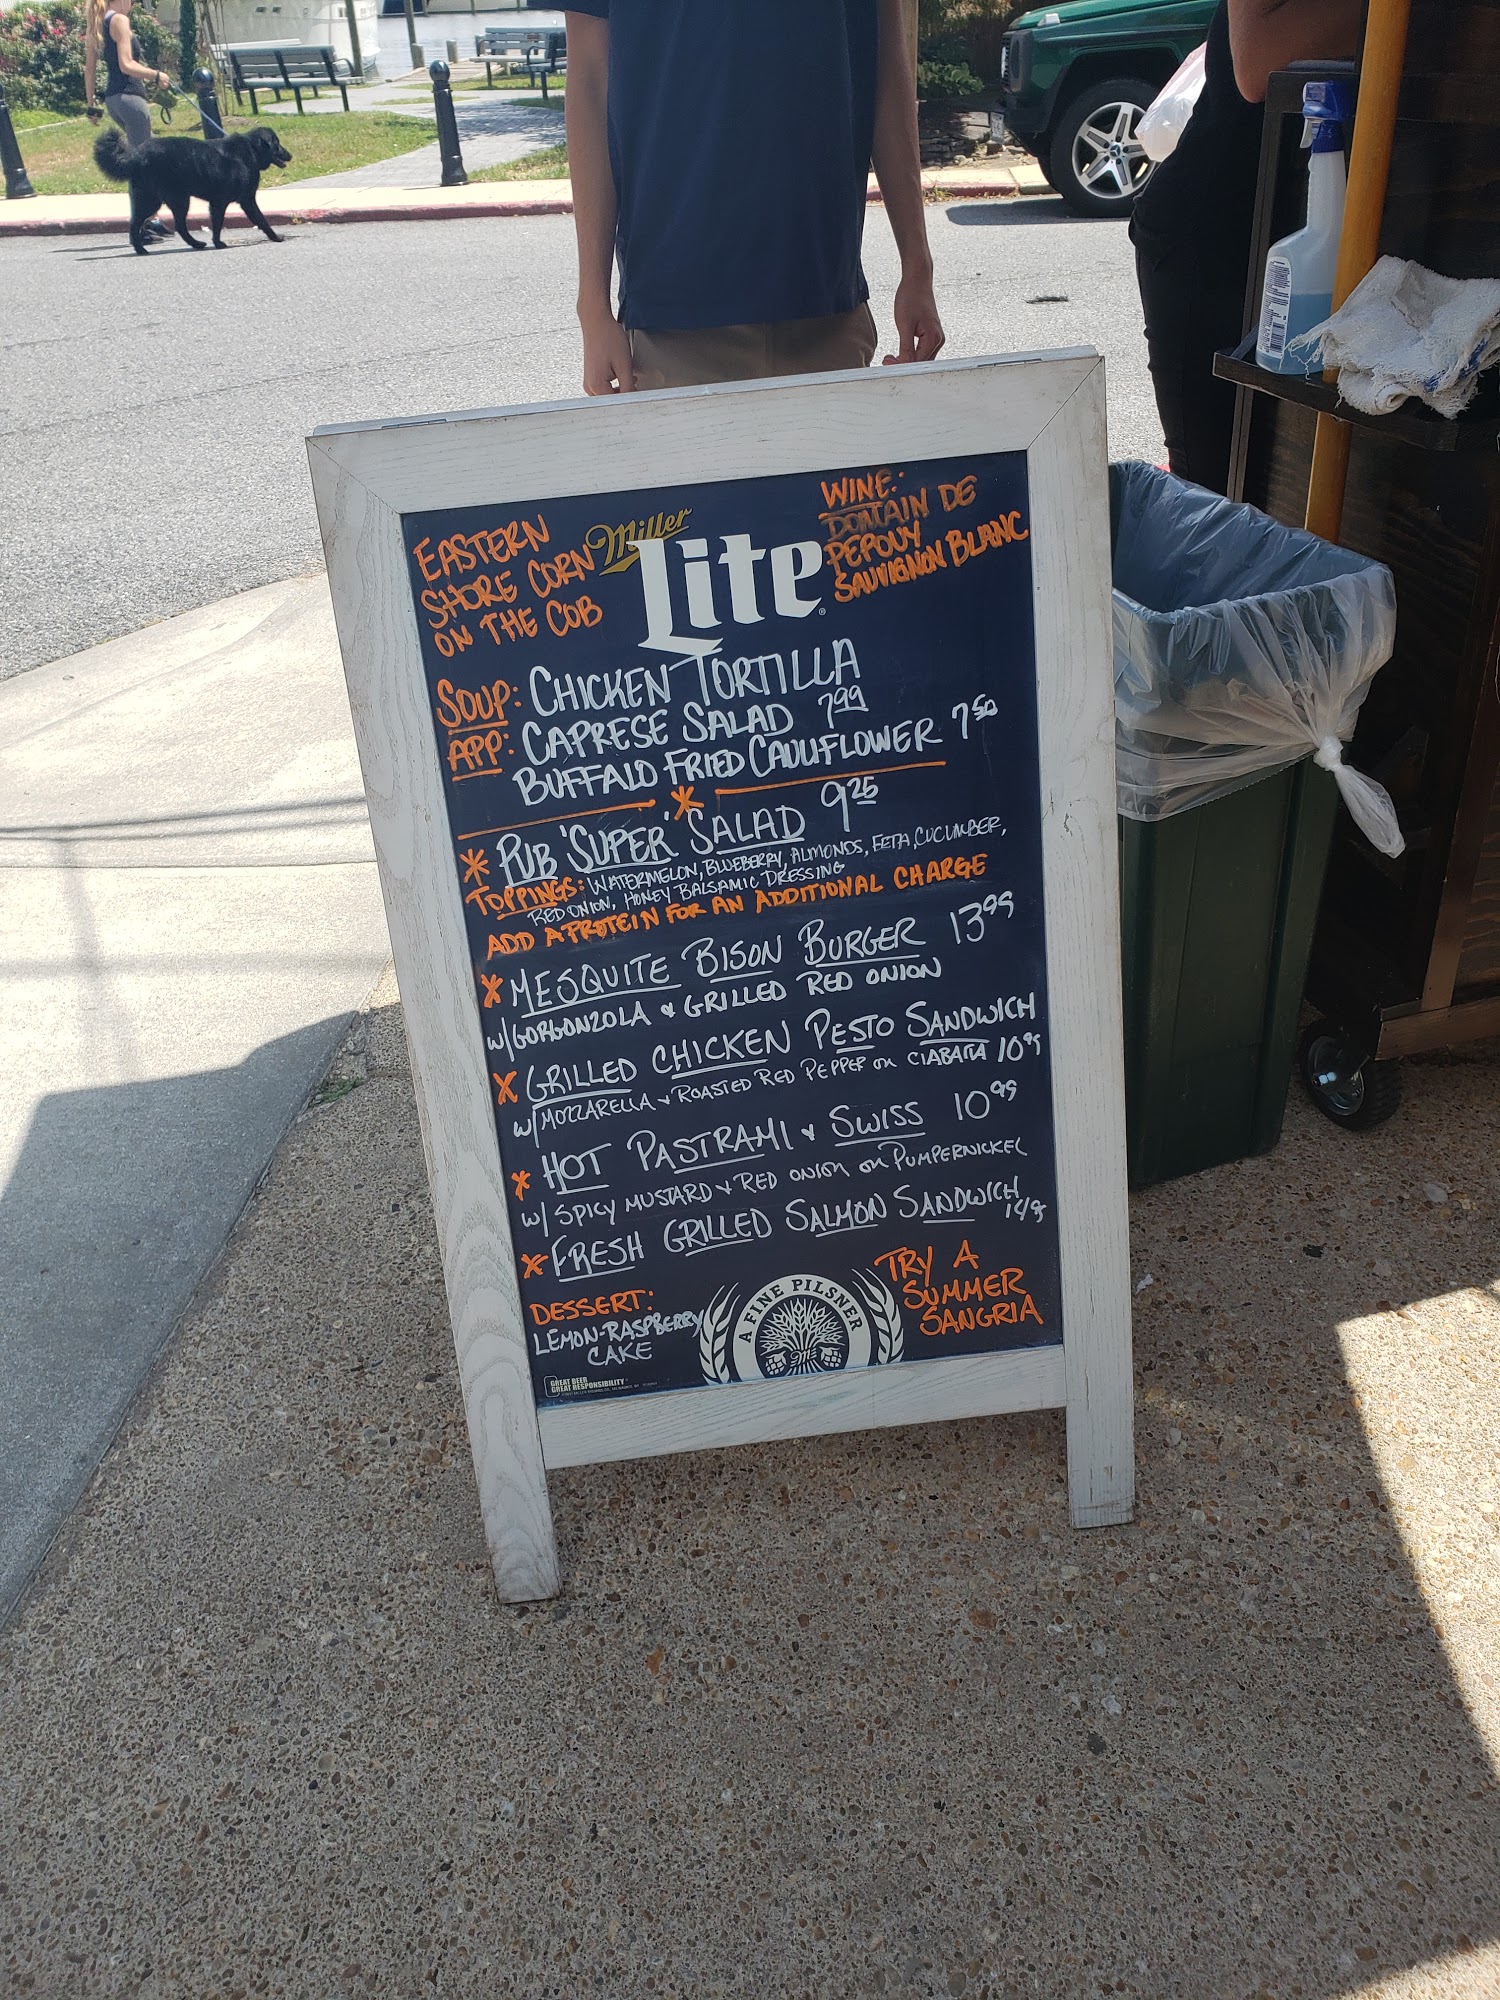 EASTERN
SHORE CORN
ON THE COB
Miller
Lite
WINE:
DOMAIN DE
PEPOUY
SAUVIGNON BLANC
SOUP: CHICKEN TORTILLA
APP: CAPRESE SALAD 799
BUFFALO FRIED CAULIFLOWER 7 50
* PUB 'SUPER' SALAD 9 25
TOPPINGS: WATERMELON, BLUEBERRY, ALMONDS, FETA, CUCUMBER,
RED ONION, HONEY BALSAMIC DRESSING
ADD A PROTEIN FOR AN ADDITIONAL CHARGE
* MESQUITE BISON BURGER 13 99
W/GORGONZOLA & GRILLED RED ONION
X GRILLED CHICKEN PESTO SANDWICH
W/MOZZARELLA & ROASTED RED PEPPER ON CIABATTA 10 99
* HOT PASTRAMI & SWISS 10 99
W/ SPICY MUSTARD & RED ONION ON PUMPERNICKEL
* FRESH GRILLED SALMON SANDWICH
14 95
DESSERT:
LEMON-RASPBERRY
CAKE
A FINE PILSNER
TRY A
SUMMER
SANGRIA
GREAT BEER
GREAT RESPONSIBILITY